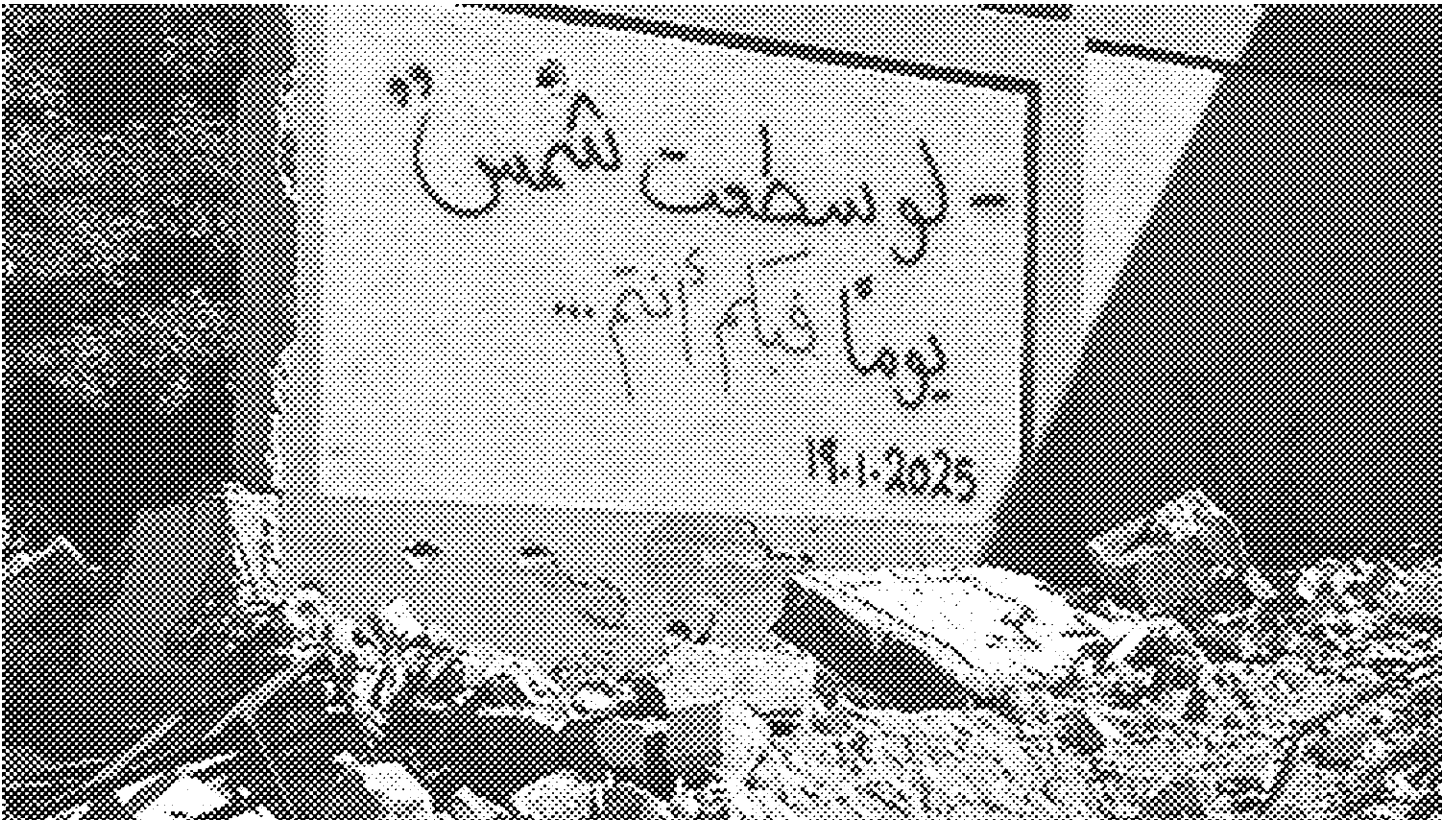 - لو سطعت شمسٌ
يومًا فبكم أنتم...
19.1.2025